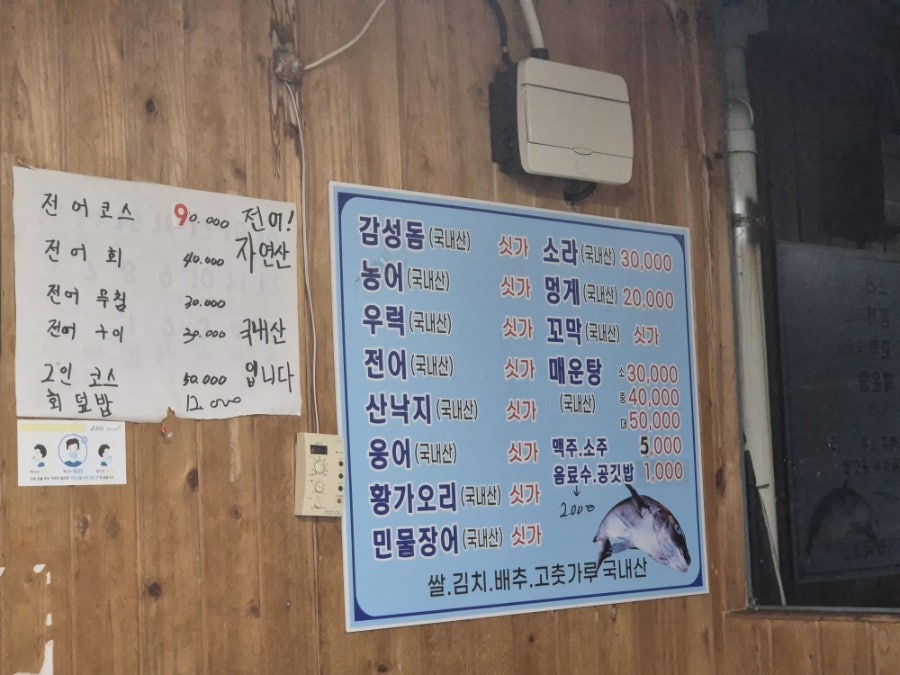 전어코스 90.000
전어 회 40.000
전어 무침 30.000
전어 구이 30.000
2인 코스 50.000
회 덮밥 12.000
전어!
자연산
국내산
입니다
감성돔(국내산) 싯가
농어(국내산) 싯가
우럭(국내산) 싯가
전어(국내산) 싯가
산낙지(국내산) 싯가
웅어(국내산) 싯가
황가오리(국내산) 싯가
민물장어(국내산) 싯가
소라(국내산) 30,000
멍게(국내산) 20,000
꼬막(국내산) 싯가
매운탕 소30,000
(국내산) 중40,000
대50,000
맥주.소주 5,000
음료수.공깃밥 1,000
2.000
쌀.김치.배추.고춧가루 국내산